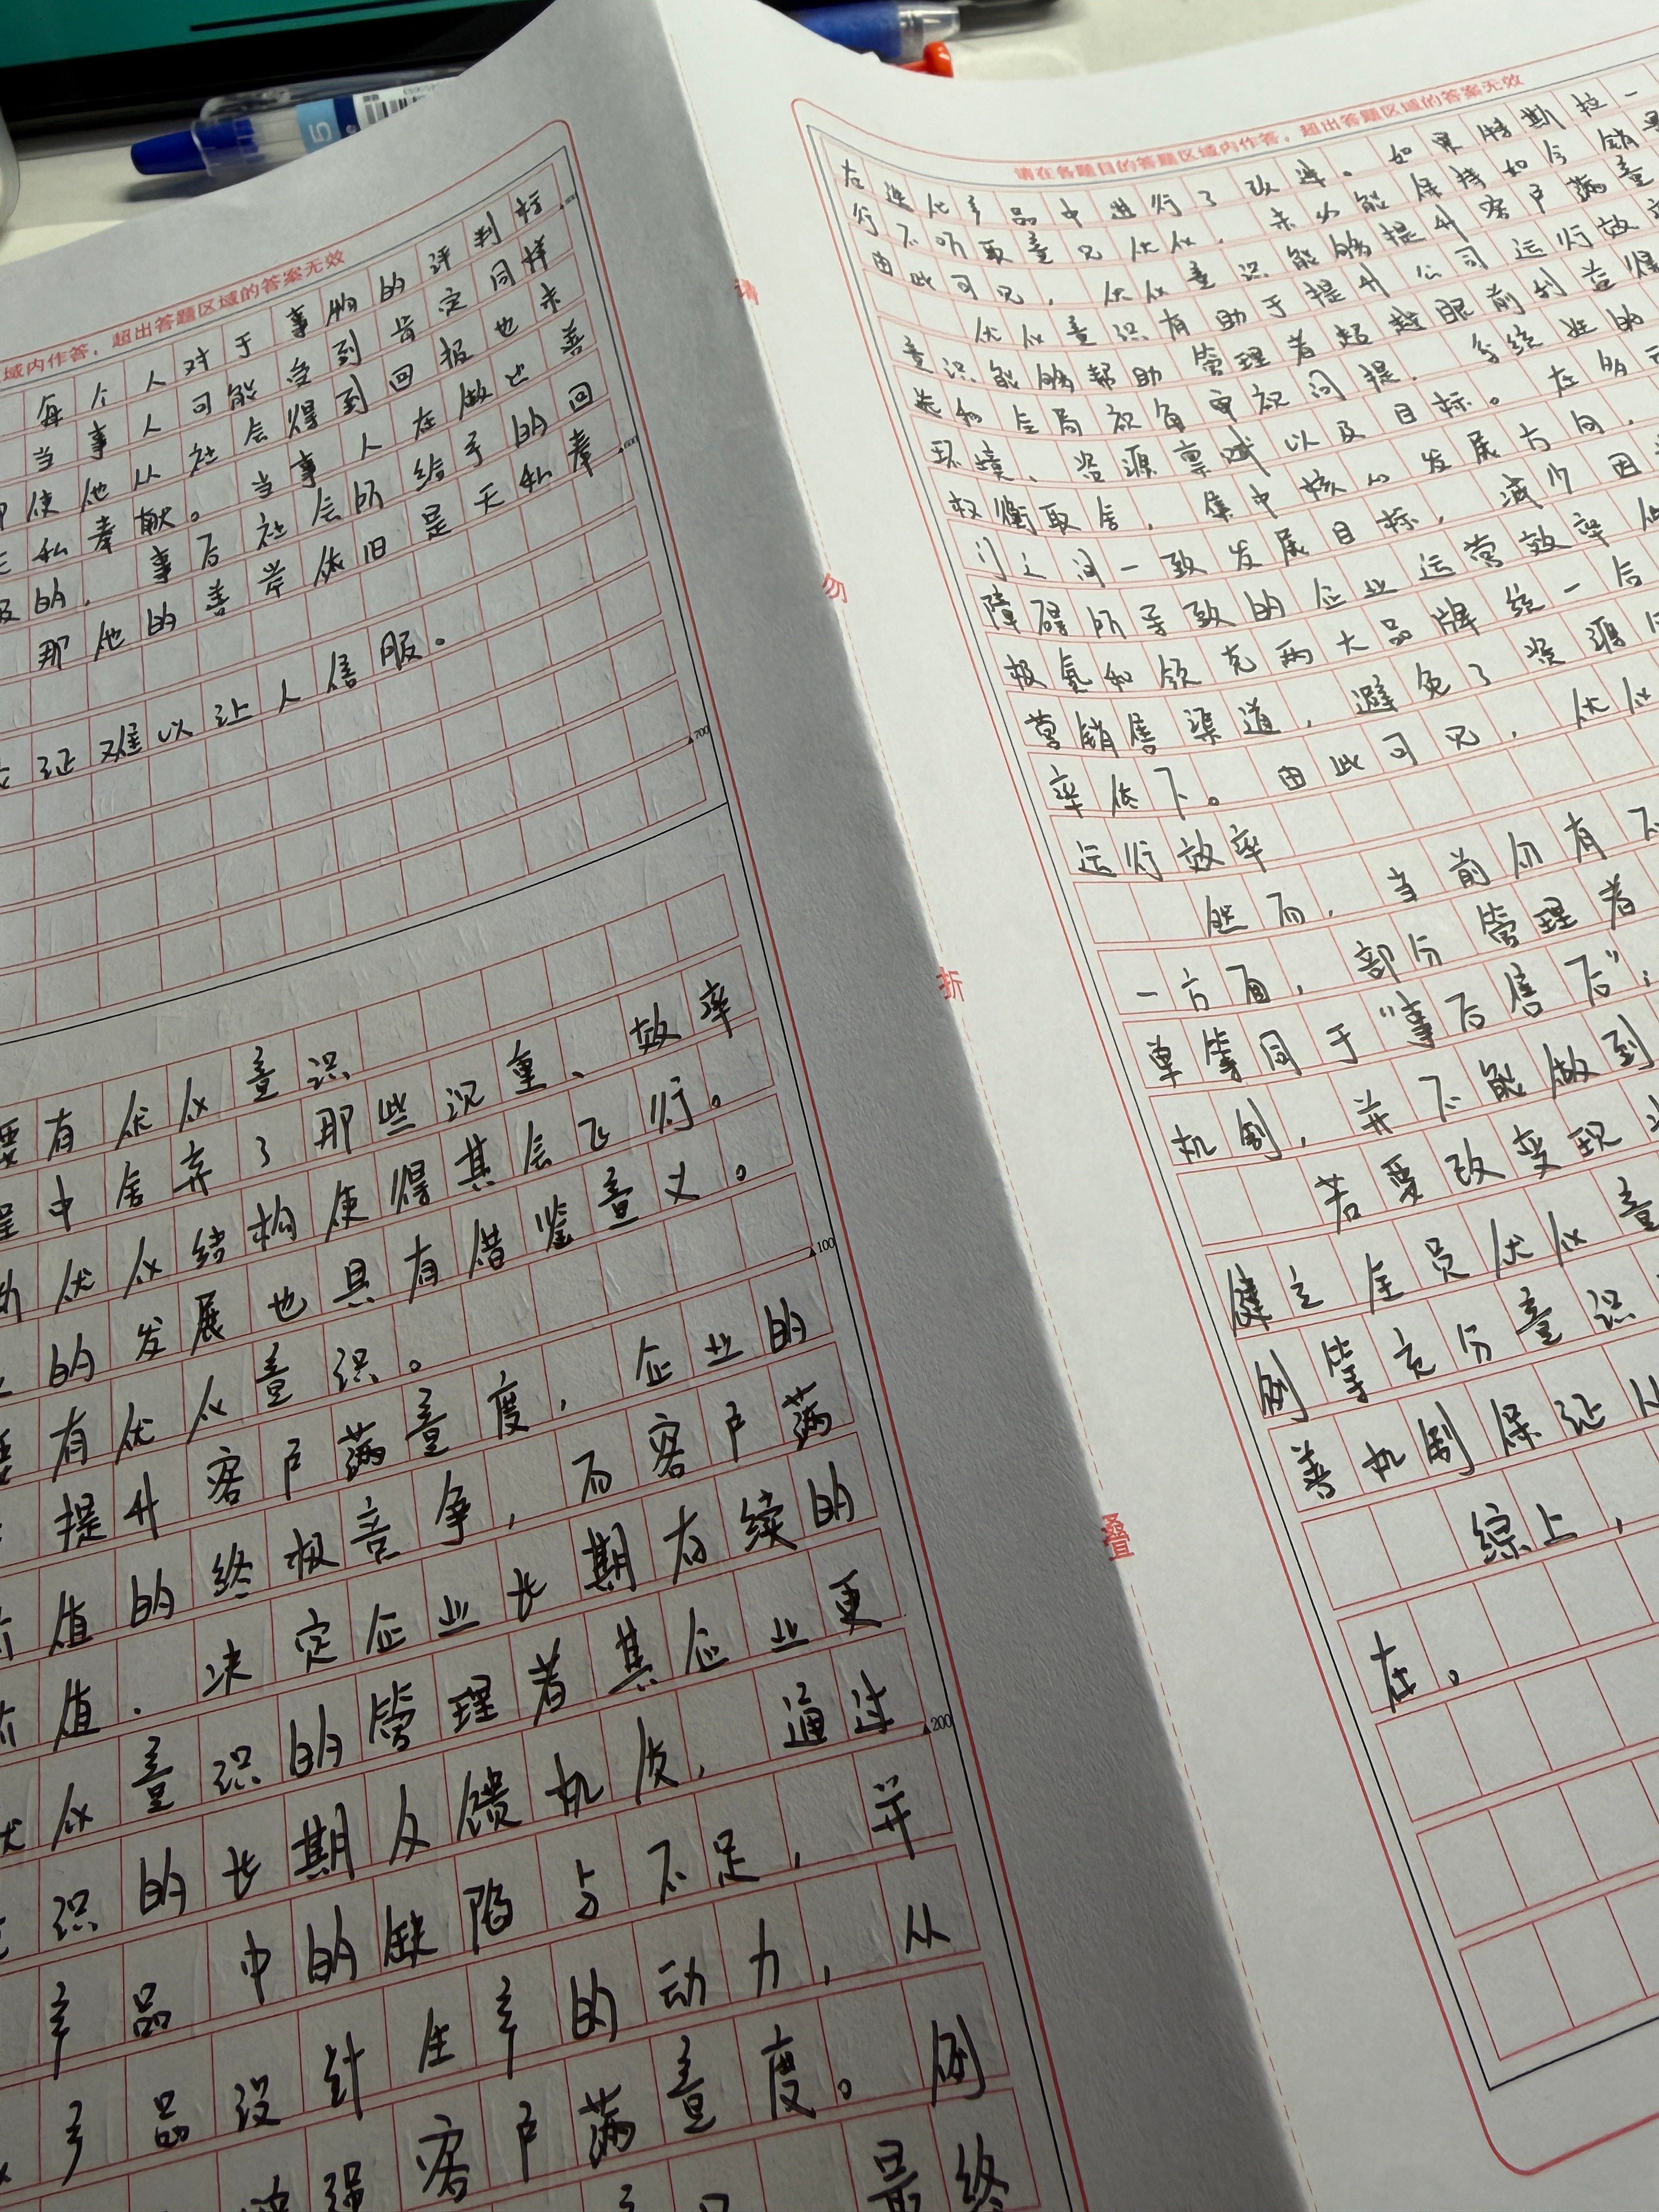 域内作答,超出答题区域的答案无效
每个人对于事物的评判标
当事人可能受到肯定同样
即使他从社会得到回报也未
私奉献。当事人在做出善
的,事后社会所给予的回
那他的善举依旧是无私奉
证难以让人信服。
700
要有优化意识
程中舍弃了那些沉重、效率
优化结构使得其会飞行。
的发展也具有借鉴意义。
100
要有优化意识。
提升客户满意度,企业的
价值的终极竞争,而客户满
价值.决定企业长期存续的
优化意识的管理者其企业更
识的长期反馈机制,通过
200
产品中的缺陷与不足,并
产品设计生产的动力,从
客户满意度。例
最终
请勿折叠
请在各题目的答题区域内作答,超出答题区域的答案无效
在迭代产品中进行了改进。如果特斯拉一
行不听取意见优化,未必能保持如今销量
由此可见,优化意识能够提升客户满意
优化意识有助于提升公司运行效率
意识能够帮助管理者超越眼前利益得
先和全局视角审视问提.系统性的
环境、资源禀赋以及目标。在多
权衡取舍,集中核心发展方向,
门之间一致发展目标,减少因
障碍所导致的企业运营效率低
极氪和领克两大品牌统一合
营销售渠道,避免了资源
率低下。由此可见,优化
运行效率
然而,当前仍有不
一方面,部分管理者
单等同于“事后售后”;
机制,并不能做到
若要改变现状
建立全员优化意
例等充分意识
善机制保证从
综上,
在。